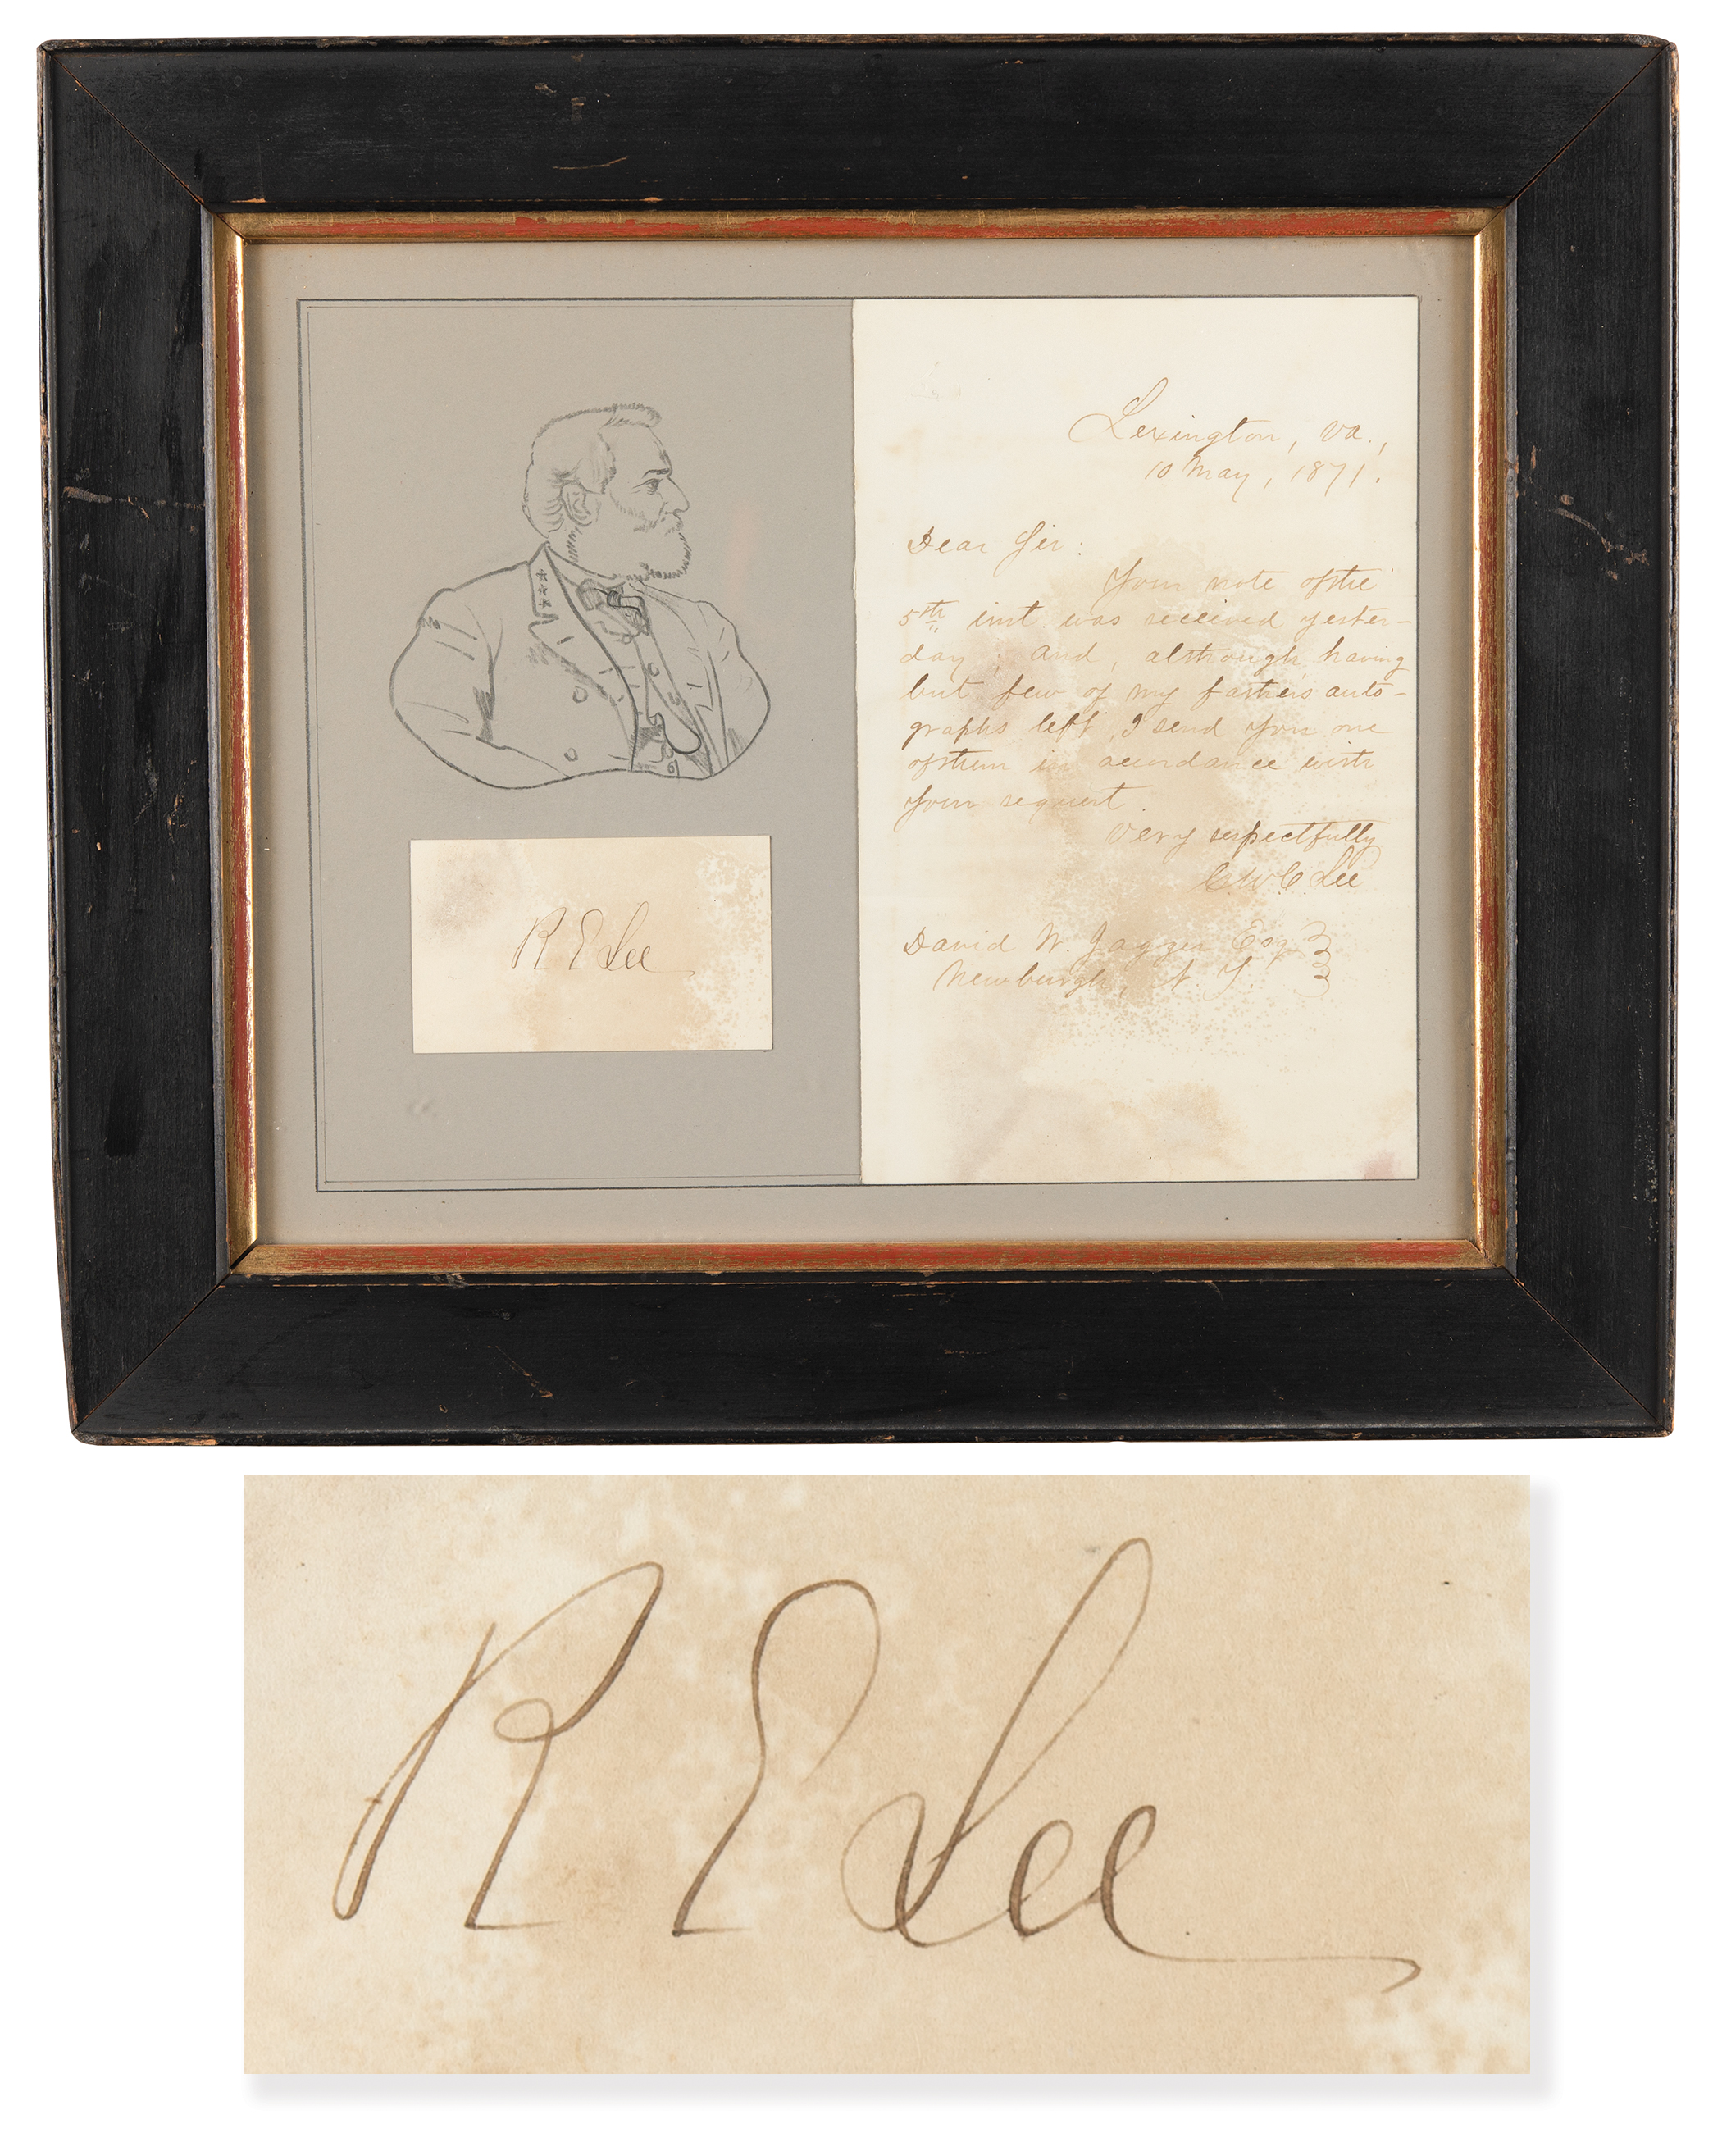 R E Lee
Lexington, Va.,
10 May, 1871.
Dear Sir:
Your note of the
5th inst. was received yester-
day; and, although having
but few of my father's auto-
graphs left, I send you one
of them in accordance with
your request.
Very respectfully
G W C Lee
David W. Jagger Esq.
Newburgh, N. Y.
R E Lee